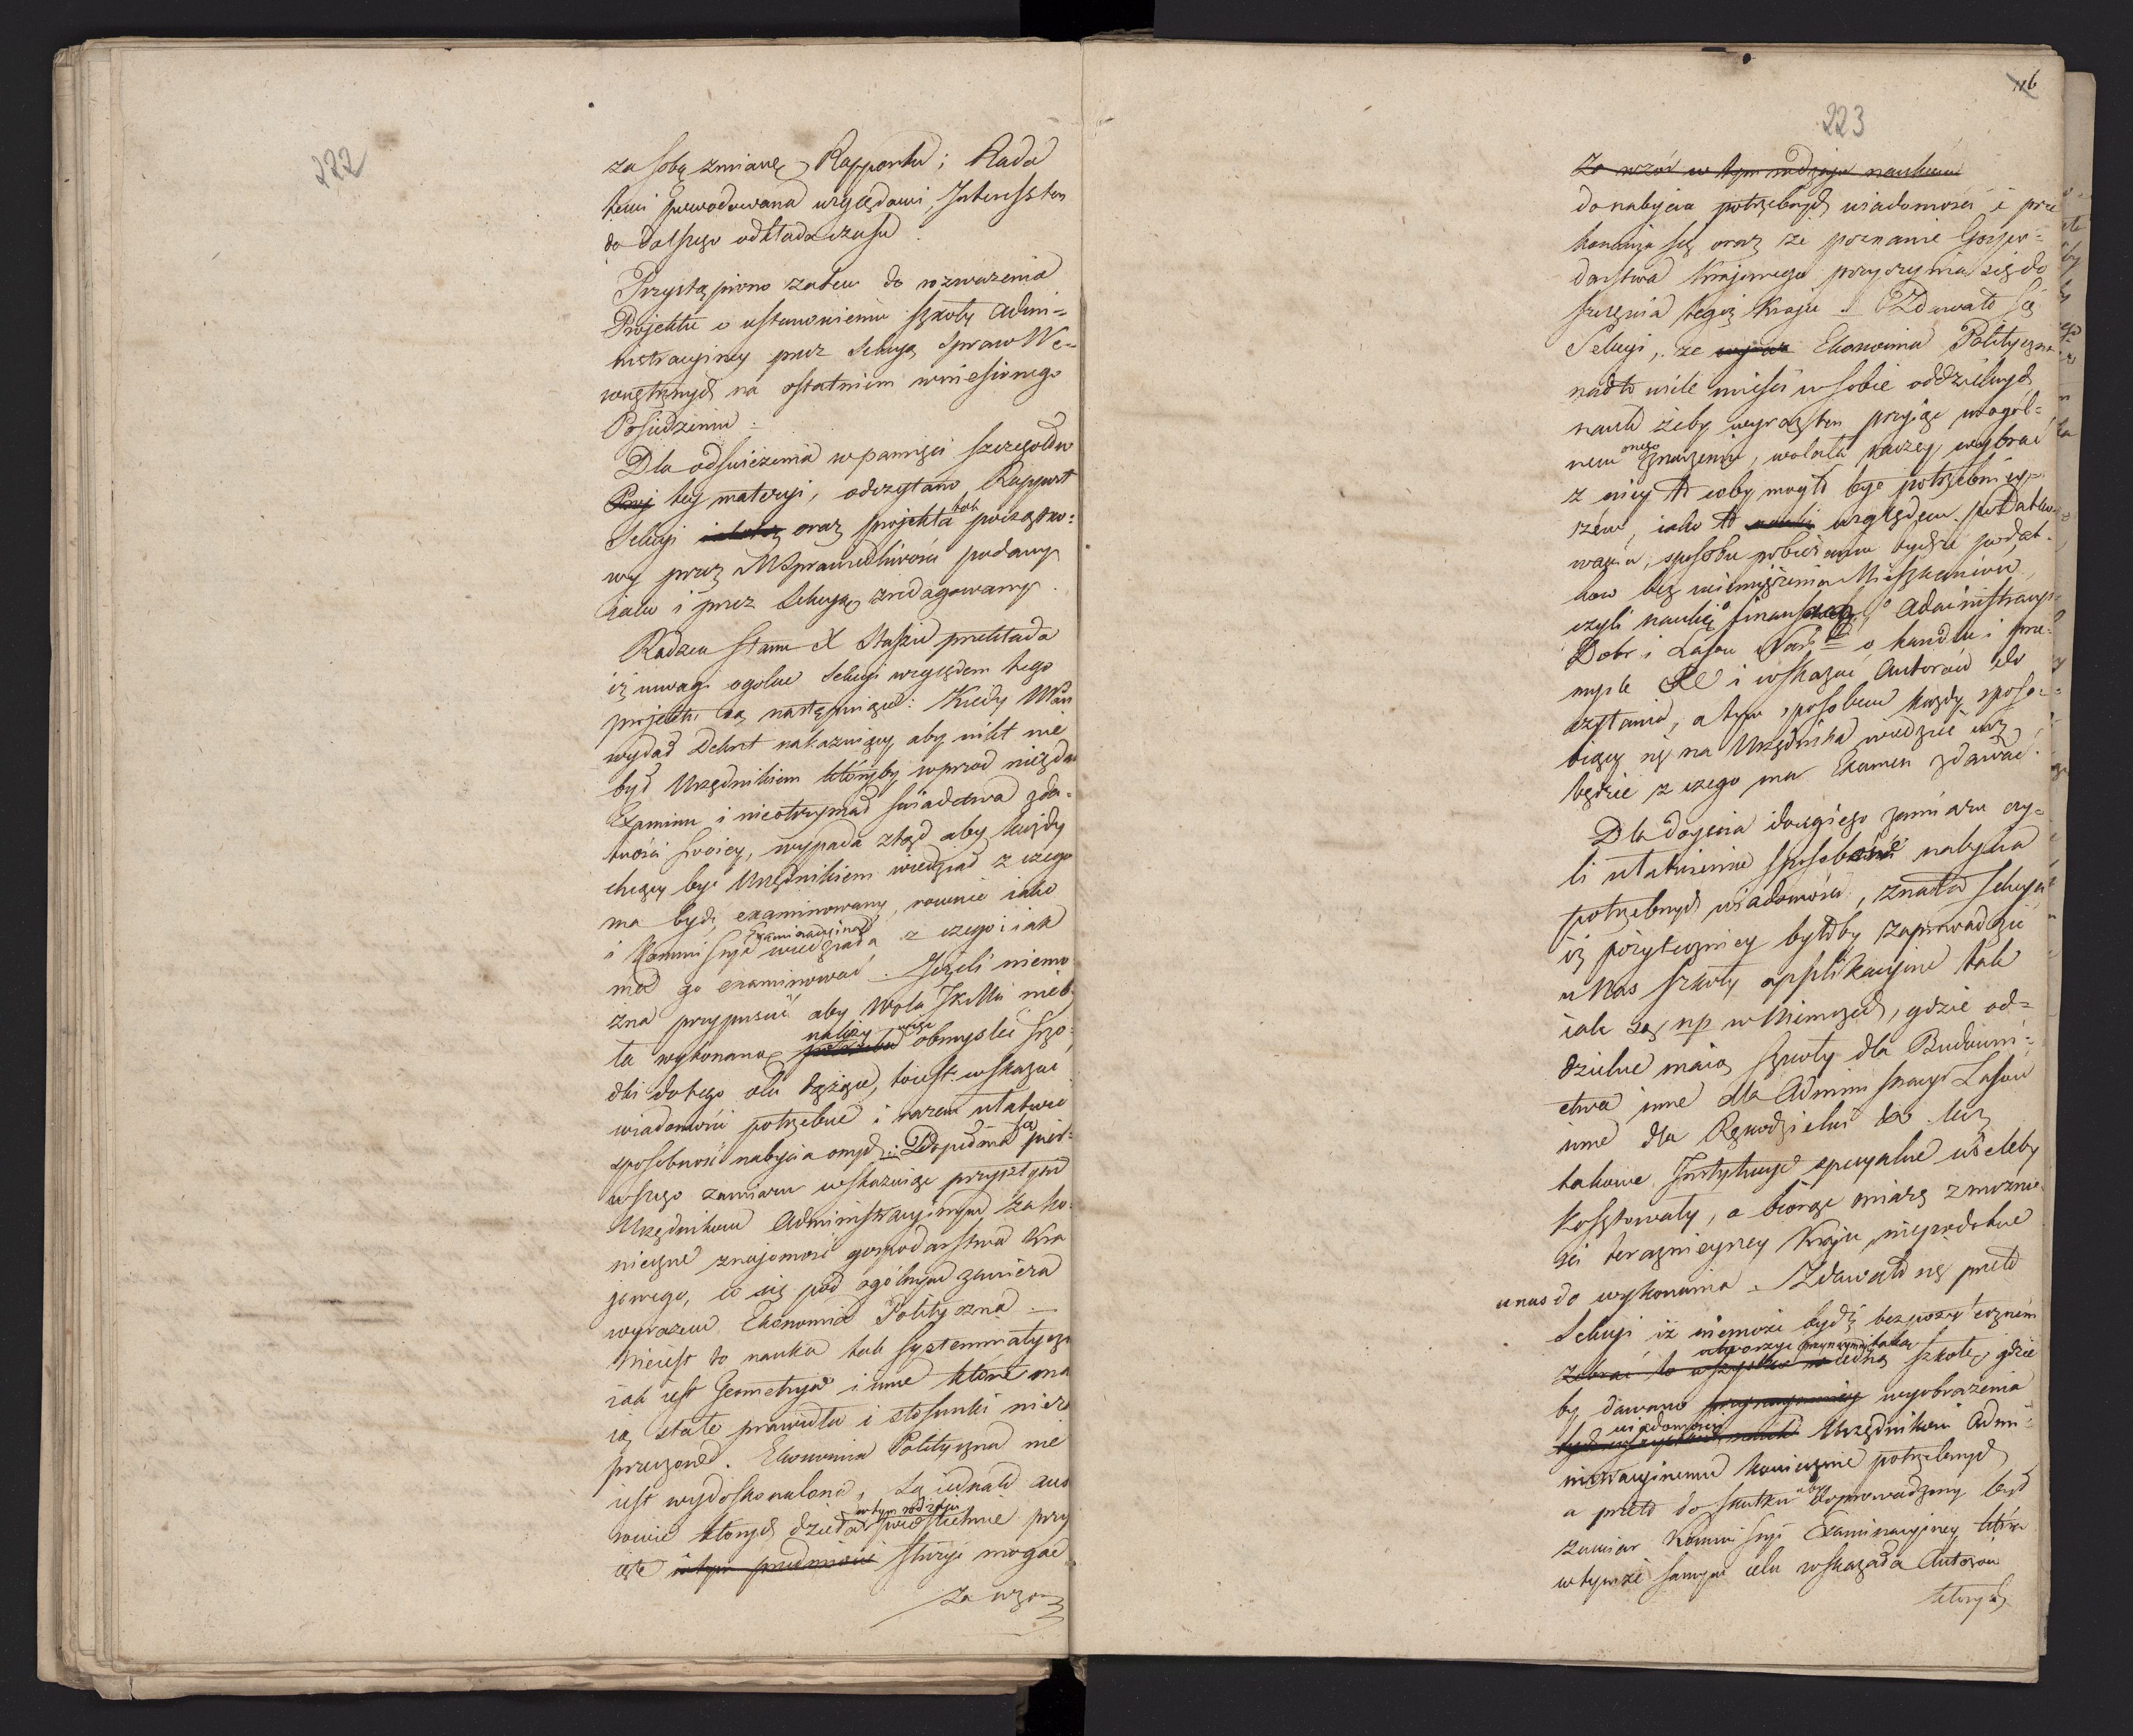 222
za sobą zmianę Rapportu; Rada
temi powodowana względami, Interess ten
do dalszego odkłada czasu.
Przystąpiono zatem do rozważenia
Projektu o ustanowieniu szkoły Admi=
nistracyiney przez Sekcyą Spraw We=
wnętrznych na ostatniem wniesionego
Posiedzeniu:
Dla odświeżenia w pamięci szczegółów
tey materyi, odczytano Rapport
Sekcyi oraz projekta tak początko=
wy przez M Sprawiedliwości podany
iako i przez Sekcyą zredagowany.
Radzca Stanu X Staszic przekłada
iż uwagi ogólne Sekcyi względem tego
projektu są następuiące: Kiedy
wydał Dekret nakazuiący aby nikt nie
był Urzędnikiem któryby wprzód nie zdał
Examinu i nieotrzymał świadectwa zda=
tności swoiey, wypada ztąd aby każdy
chcący być Urzędnikiem wiedział z czego
ma bydź examinowany, rownie iako
i Kommissya Examinacyina wiedziała z czego i iak
ma go examinować. Jeżeli niemo
żna przypuścić aby wola JKMci nieby
ła wykonana należy więc obmyslić szro=
dki do tego celu dążące, toiest wskazać
wiadomości potrzebne i razem ułatwić
sposobność nabycia onych. Dopełnia się pier=
wszego zamiaru wskazuiąc przyszłym
Urzędnikom Administracyinym za ko=
nieczne znajomość gospodarstwa Kra
jowego, co się pod ogólnym zawiera
wyrazem Ekonomia Polityczna.—
Nieiest to nauka tak systematyczna
iak iest Geometrya i inne które ma
ią stałe prawidła i stosunki nie
przeczone. Ekonomia Polityczna nie
iest wydoskonalona, Są iednak auto
rowie których dzieła w tym rodzaju świetnie przy
ięte w tym przedmiocie służyć mogące
za wzor
116
223
Za wzór w tym rodzaju naukowi
do nabycia potrzebnych wiadomości i prze
konania się oraz że poznanie Gospo=
darstwa Kraiowego przyczynia się do
szczęścia tegoż Kraju. Zdawało się
Sekcyi, że Ekonomia Polityczna
nadto wiele mieści w sobie oddzielnych
nauk żeby wyraz ten przyiąć w ogól=
nem onego znaczeniu, wolała raczey wybrać
z niey to coby mogło być potrzebniey=
szem, iako to względem podatko=
wania, sposobu pobierania tychże podat=
kow bez uciemiężenia Mieszkańców,
czyli naukę finansową, o Administracyi
Dobr i Lasów Nar: o handlu i prze=
myśle &c i wskazać Autorów do
czytania, a tym sposobem każdy sposo=
biący się na Urzędnika wiedzieć iuż
będzie z czego ma Examen zdawać.
Dla doyścia drugiego zamiaru czy=
li ułatwienia sposobności nabycia
potrzebnych wiadomości, znała Sekcya
iż pożyteczniey byłoby zaprowadzić
u Nas szkoły applikacyine tak
iak są np w Niemczech, gdzie od=
dzielne maią szkoły dla Budowni=
ctwa inne dla Administracyi Lasów
inne dla Rękodzielni &c. lecz
takowe Instytucye specyalne wieleby
kosztowały, a biorąc miarę z możno
ści teraznieyszey Kraju niepodobne
u nas do wykonania. Zdawało się przeto
Sekcyi iż niemoże bydź bezpożytecznem
zebrać to wszystko w utworzyć przynaymniey taką iedną szkołę, gdzie
by dawano przynaymniey wyobrażenia
wiadomości Urzędnikowi Admi=
nistracyinemu koniecznie potrzebnych
a przeto do skutku aby doprowadzony był
zamiar Kommissyi Examinacyiney która
w tymże samym celu wskazała Autorów
których